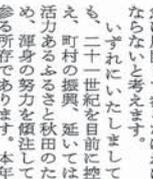 ならないと考えます。
いずれにいたしまして
も、二十一世紀を目前に控
え、町村の振興、延いては
活力あるふるさと秋田のた
め、渾身の努力を傾注して
参る所存であります。本年